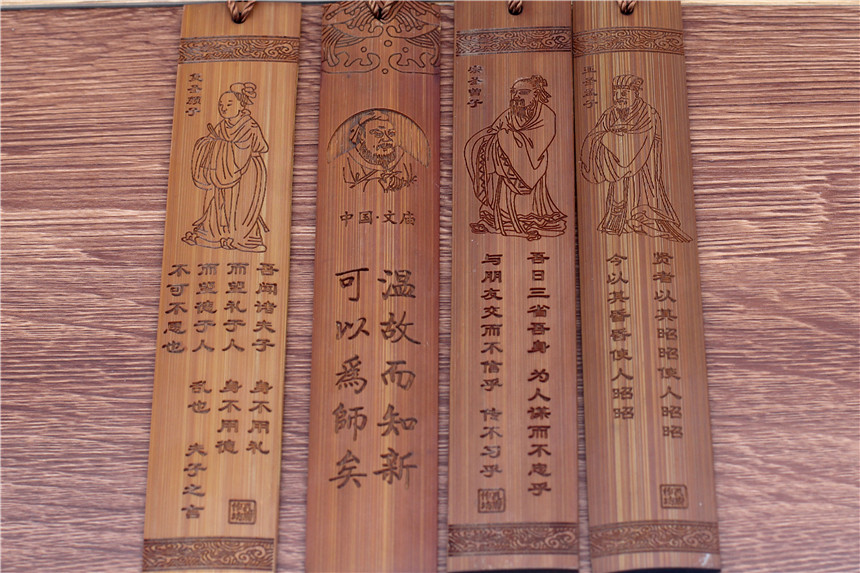 复圣颜子
吾闻诸夫子 身不用礼
而望礼于人 身不用德
而望德于人 乱也 夫子之言
不可不思也
中国·文庙
温故而知新
可以為師矣
宗圣曾子
吾日三省吾身 为人谋而不忠乎
与朋友交而不信乎 传不习乎
亚圣孟子
贤者以其昭昭使人昭昭
今以其昏昏使人昭昭